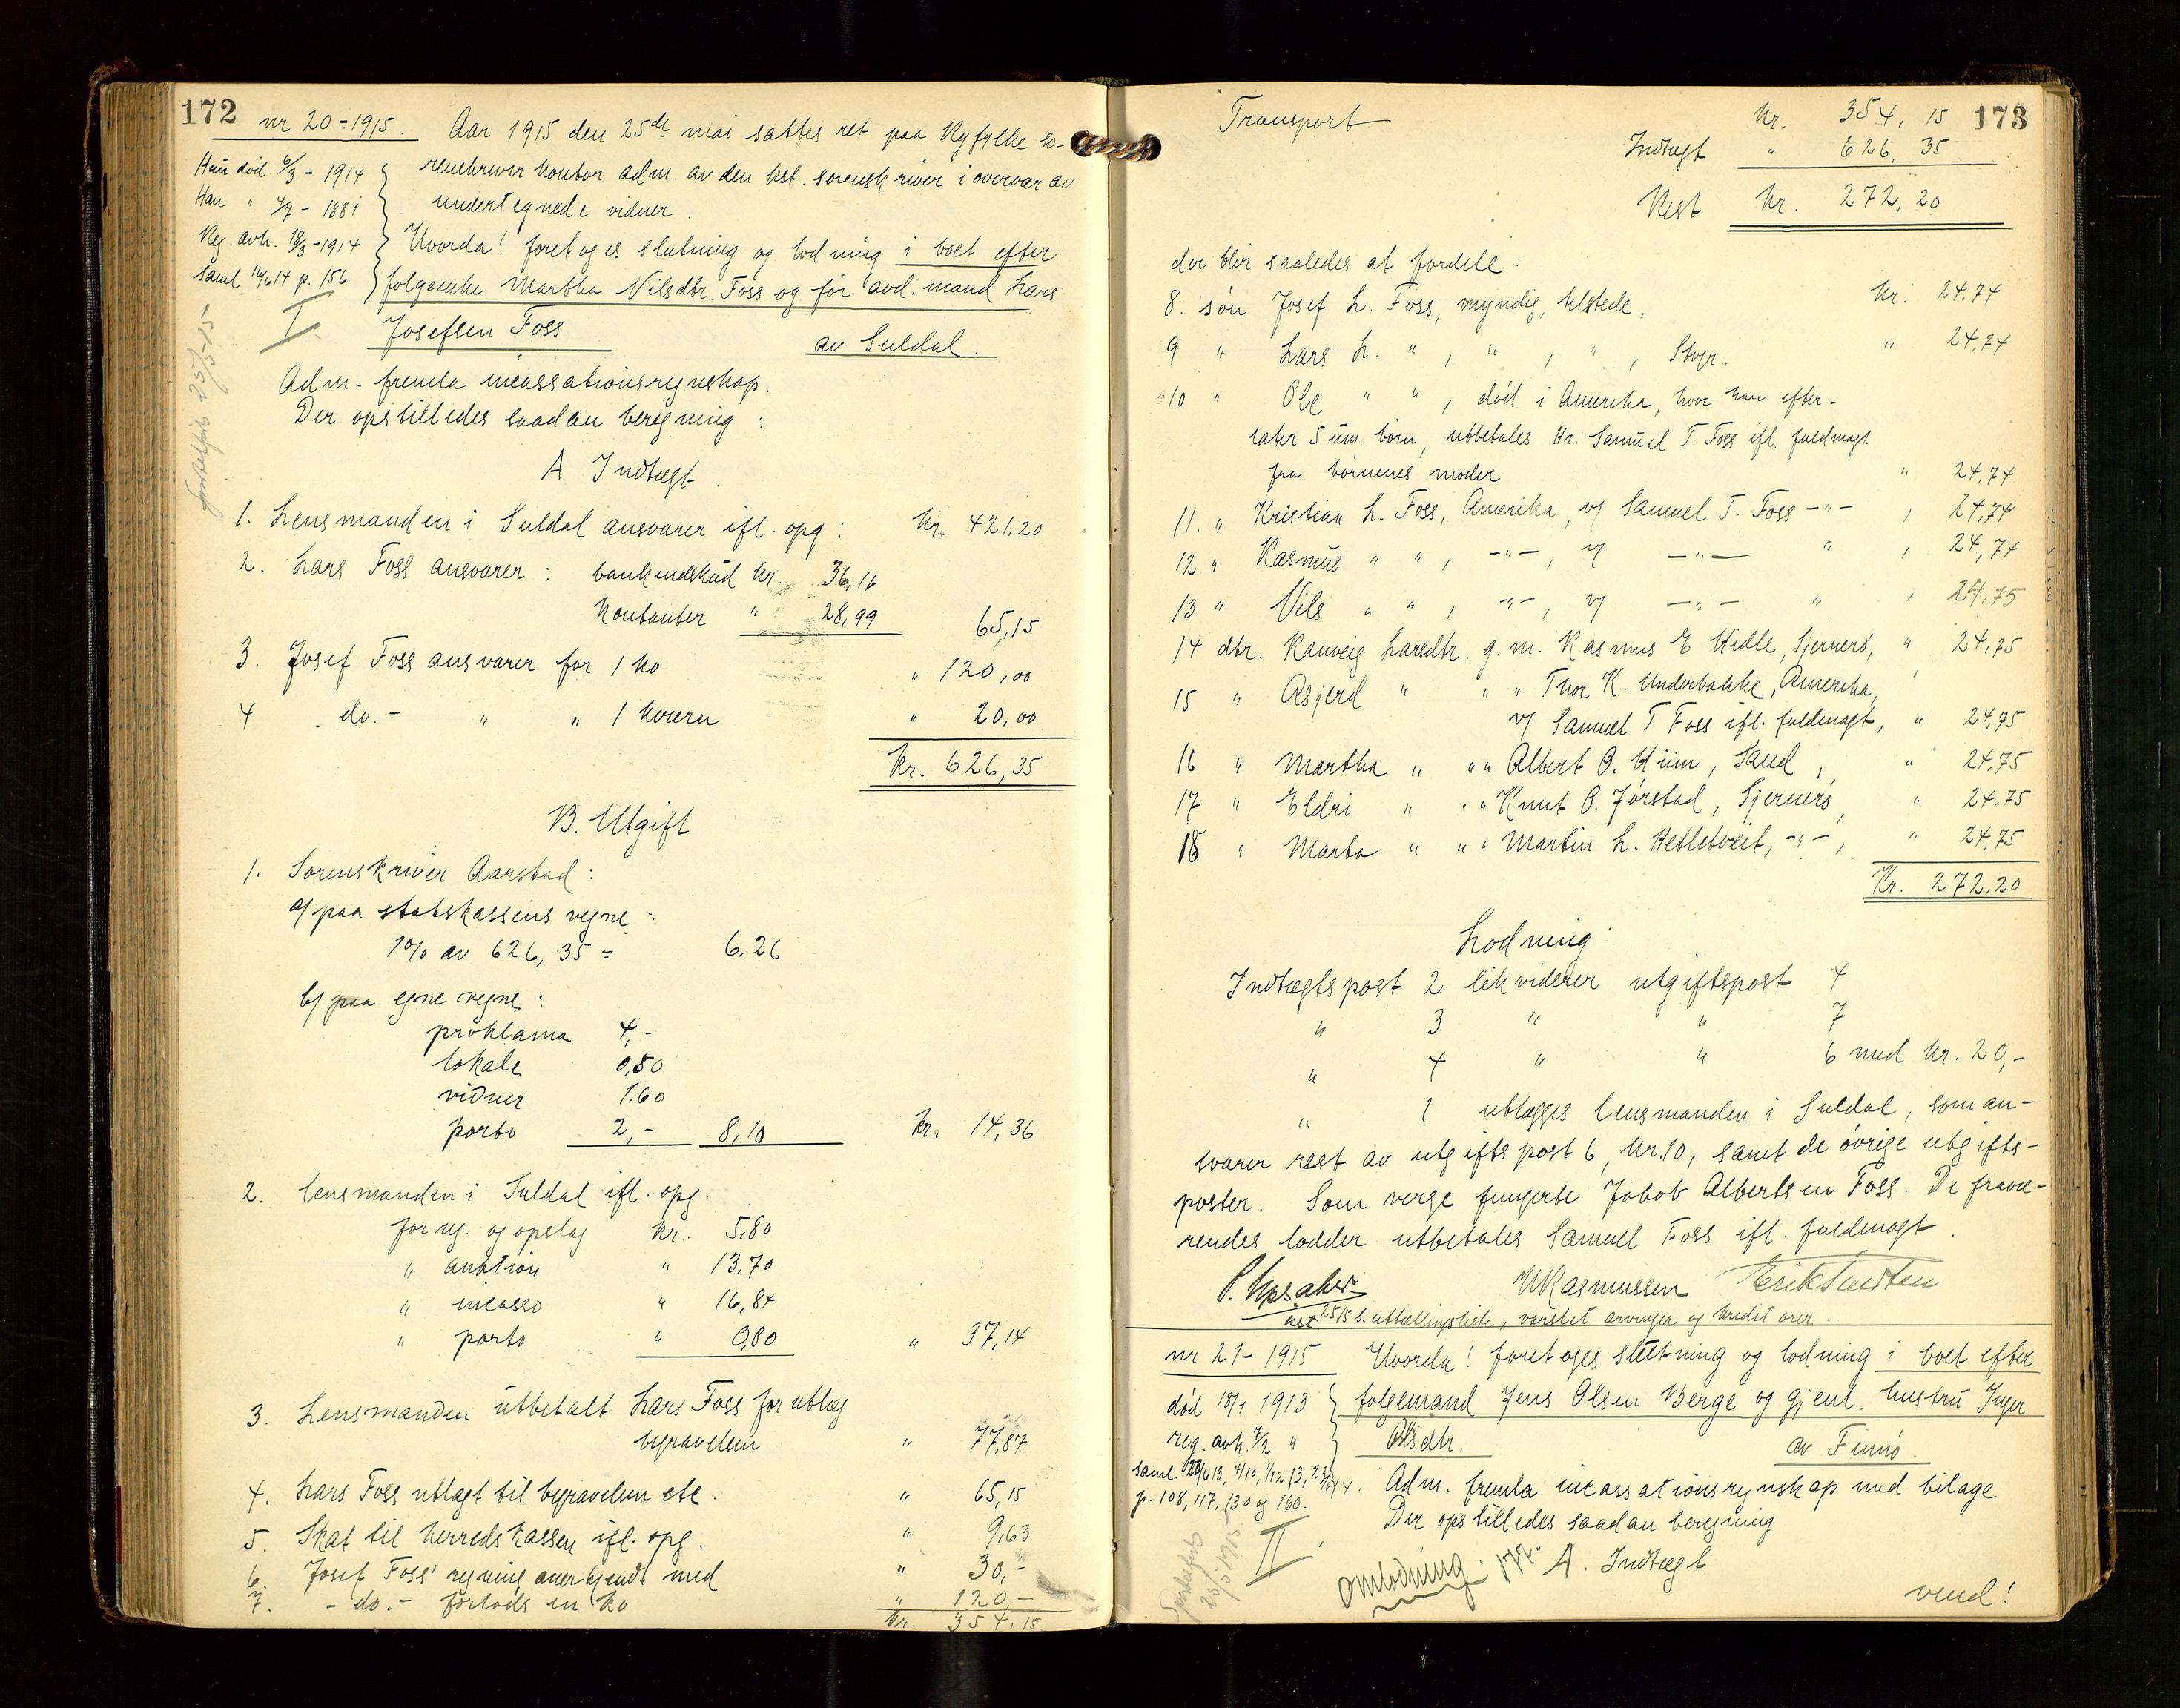 172
nr 20-1915. Aar 1915 den 25de mai sattes ret paa Ryfylke so-
Hun död 6/3 - 1914 renskriver kontor adm. av den kst. sorenskriver i overvær av
Han " 4/7 - 1881 undertegnede vidner.
Reg. avh. 18/3-1914 Hvorda! foretoges slutning og lodning i boet efter
Saml 16/6 14 p. 156 folgeenke Martha Nilsdtr. Foss og för avd. mand Lars
I. Josefsen Foss av Suldal.
Adm. fremla incassationsregnskap.
Der opstilledes saadan beregning:
A Indtægt.
1. Lensmanden i Suldal ansvarer ifl. opg: kr. 421.20
2. Lars Foss ansvarer: bankindskud kr. 36,16
Kontanter " 28,99 65,15
3. Josef Foss ansvarer for 1 ko " 120,00
4 - do. - " " 1 kvern " 20,00
kr. 626,35
B. Utgift
1. Sorenskriver Aarstad:
a/ paa statskassens vegne:
1% av 626,35 = 6.26
b/ paa egne vegne:
proklama 4,-
lokale 0,50
vidner 1.60
porto 2,- 8,10 kr. 14,36
2. lensmanden i Suldal ifl. opg.
for reg. og opslag kr. 5,80
" auktion " 13,70
" incasso " 16,84
" porto " 0,80 " 37,14
3. Lensmanden utbetalt Lars Foss for utlæg
begravelsen " 77,87
4. Lars Foss utlagt til begravelsen etc. " 65,15
5. Skat til herredskassen ifl. opg. " 9,63
6. Josef Foss' regning anerkjendt med " 30,-
7. - do. - forlods en ko " 120,-
kr. 354,15
173
Transport kr. 354,15
Indtægt " 626,35
Rest kr. 272,20
der blir saaledes at fordele:
8. sön Josef L. Foss, myndig, tilstede, kr. 24.74
9 " Lars L. " , " , " , Stvgr. " 24,74
10 " Ole " " , död i Amerika, hvor han efter-
later 5 um. börn, utbetales Hr. Samuel T. Foss ifl. fuldmagt
fra börnenes moder " 24,74
11. " Kristian L. Foss, Amerika, v/ Samuel T. Foss -"- , 24,74
12 " Rasmus " " , -"-, v/ -"- " , 24,74
13 " Nils " " , -"-, v/ -"- " , 24,75
14 dtr. Ranveig Larsdtr. g. m. Rasmus E Hidle, Sjernerö, " 24,75
15 " Asjerd " " " Thor K. Underbakke, Amerika,
v/ Samuel T Foss ifl. fuldmagt, " 24,75
16 " Martha " " " Albert O. Hiim, Sand, " 24,75
17 " Eldri " " " Knut O. Jörstad, Sjernerö, " 24,75
18 " Marta " " " Martin L. Hetletveit, -"-, " 24,75
Kr. 272,20
Lodning
Indtægtspost 2 likviderer utgiftspost 4
" 3 " " 7
" 4 " " 6 med kr. 20,-
" 1 utlægges lensmanden i Suldal, som an-
svarer rest av utgiftspost 6, kr. 10, samt de övrige utgifts-
poster. Som verge fungerte Jakob Albertsen Foss. De fravæ-
rendes lodder utbetales Samuel Foss ifl. fuldmagt.
M Rasmussen
25/5 s. utstellingsliste, varslet arvinger og kreditorer.
nr 21-1915 Hvorda! foretoges slutning og lodning i boet efter
död 18/1 1913 folgemand Jens Olsen Berge og gjenl. hustru Inger
reg. avh. 7/2 " Olsdtr. av Finnö.
Adm. fremla incassationsregnskap med bilage
p. 108, 117, 130 og 160. Der opstilledes saadan beregning
II. omlodning 177. A. Indtægt
vend!